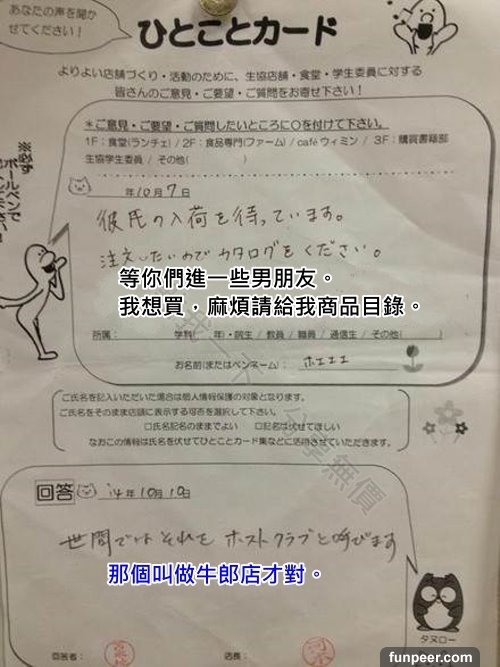 あなたの声を聞か
せてください！
ひとことカード
よりよい店舗づくり・活動のために、生協店舗・食堂・学生委員に対する
皆さんのご意見・ご要望・ご質問をお寄せ下さい！
※必ず
ボールペンで
＊ご意見・ご要望・ご質問したいところに○を付けて下さい。
1F：食堂(ランチェ) / 2F：食品専門(ファーム) / caféヴィミン / 3F：購買書籍部
生協学生委員 / その他( )
年10月7日
彼氏の入荷を待っています。
注文したいのでカタログをください。
等你們進一些男朋友。
我想買，麻煩請給我商品目錄。
所属： 学科( 年)・院生 / 教員 / 職員 / 通信生 / その他( )
お名前(またはペンネーム)： ホエエエ
ご氏名を記入いただいた場合は個人情報保護の対象となります。
ご氏名をそのまま店頭に表示する可否を選択して下さい。
□氏名記名のままでよい □記名は伏せてほしい
なおこの情報は氏名を伏せてひとことカード集などに活用させていただきます。
無價
回答 '14年10月10日
世間ではそれをホストクラブと呼びます
那個叫做牛郎店才對。
タヌロー
回答者： 店長：
funpeer.com